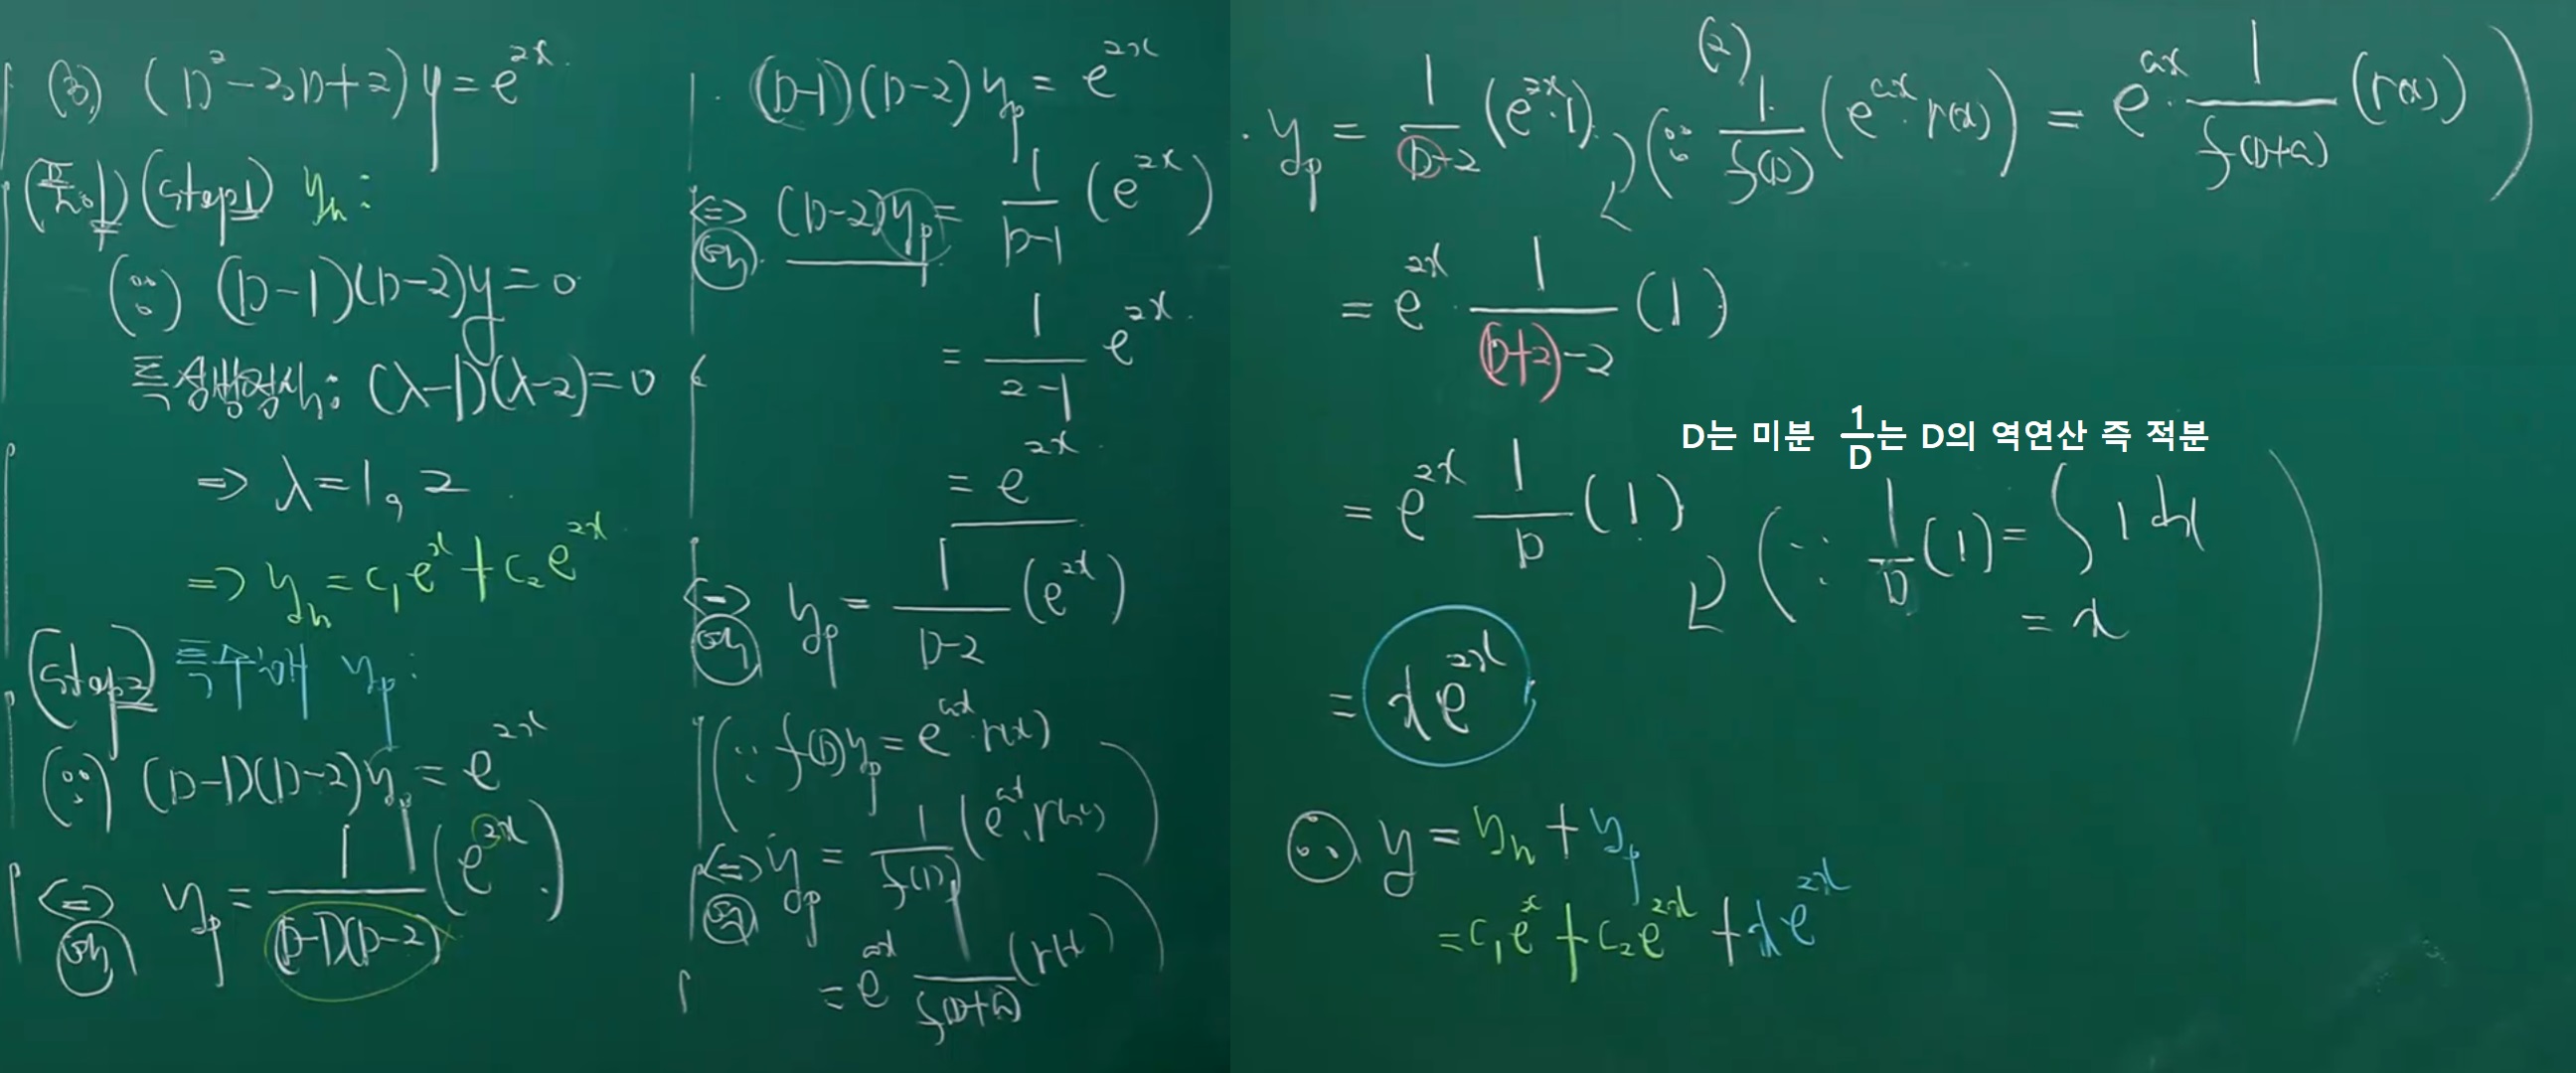 (3) (D²-3D+2)y = e^{2x}.
(풀이) (step1) y_h :
(∵) (D-1)(D-2)y = 0
특성방정식: (λ-1)(λ-2)=0
⇒ λ=1, 2
⇒ y_h = c₁e^x + c₂e^{2x}
(step2) 특수해 y_p :
(∵) (D-1)(D-2)y_p = e^{2x}
⇔ y_p = 1/((D-1)(D-2)) (e^{2x})
(D-1)(D-2)y_p = e^{2x}
⇔ (D-2)y_p = 1/(D-1) (e^{2x})
= 1/(2-1) e^{2x}.
= e^{2x}
⇔ y_p = 1/(D-2) (e^{2x})
(∵ f(D)y_p = e^{ax}·r(x)
⇔ y_p = 1/f(D) (e^{ax}·r(x))
= e^{ax} 1/f(D+a) (r(x))
(2)
· y_p = 1/(D-2) (e^{2x}·1) (∵ 1/f(D) (e^{ax}·r(x)) = e^{ax}· 1/f(D+a) (r(x)))
= e^{2x}· 1/((D+2)-2) (1)
D는 미분 1/D는 D의 역연산 즉 적분
= e^{2x} 1/D (1) (∵ 1/D (1) = ∫ 1 dx
= x)
= xe^{2x}
∴ y = y_h + y_p
= c₁e^x + c₂e^{2x} + xe^{2x}